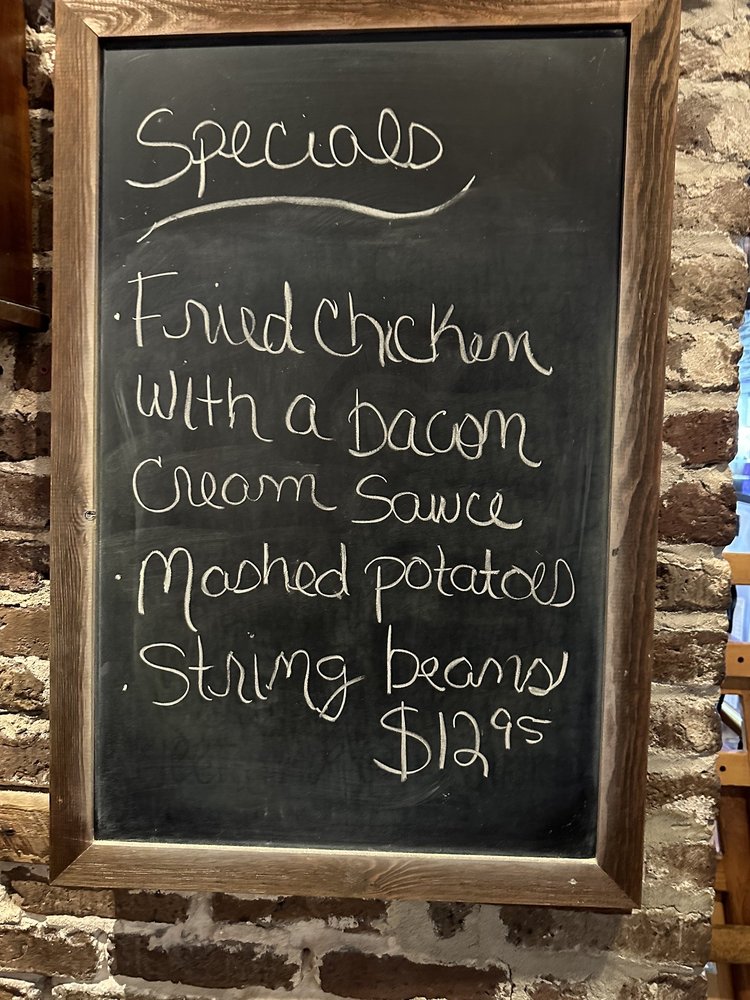 Specials
· Fried chicken
with a bacon
cream sauce
· Mashed potatoes
· String beans
$12.95